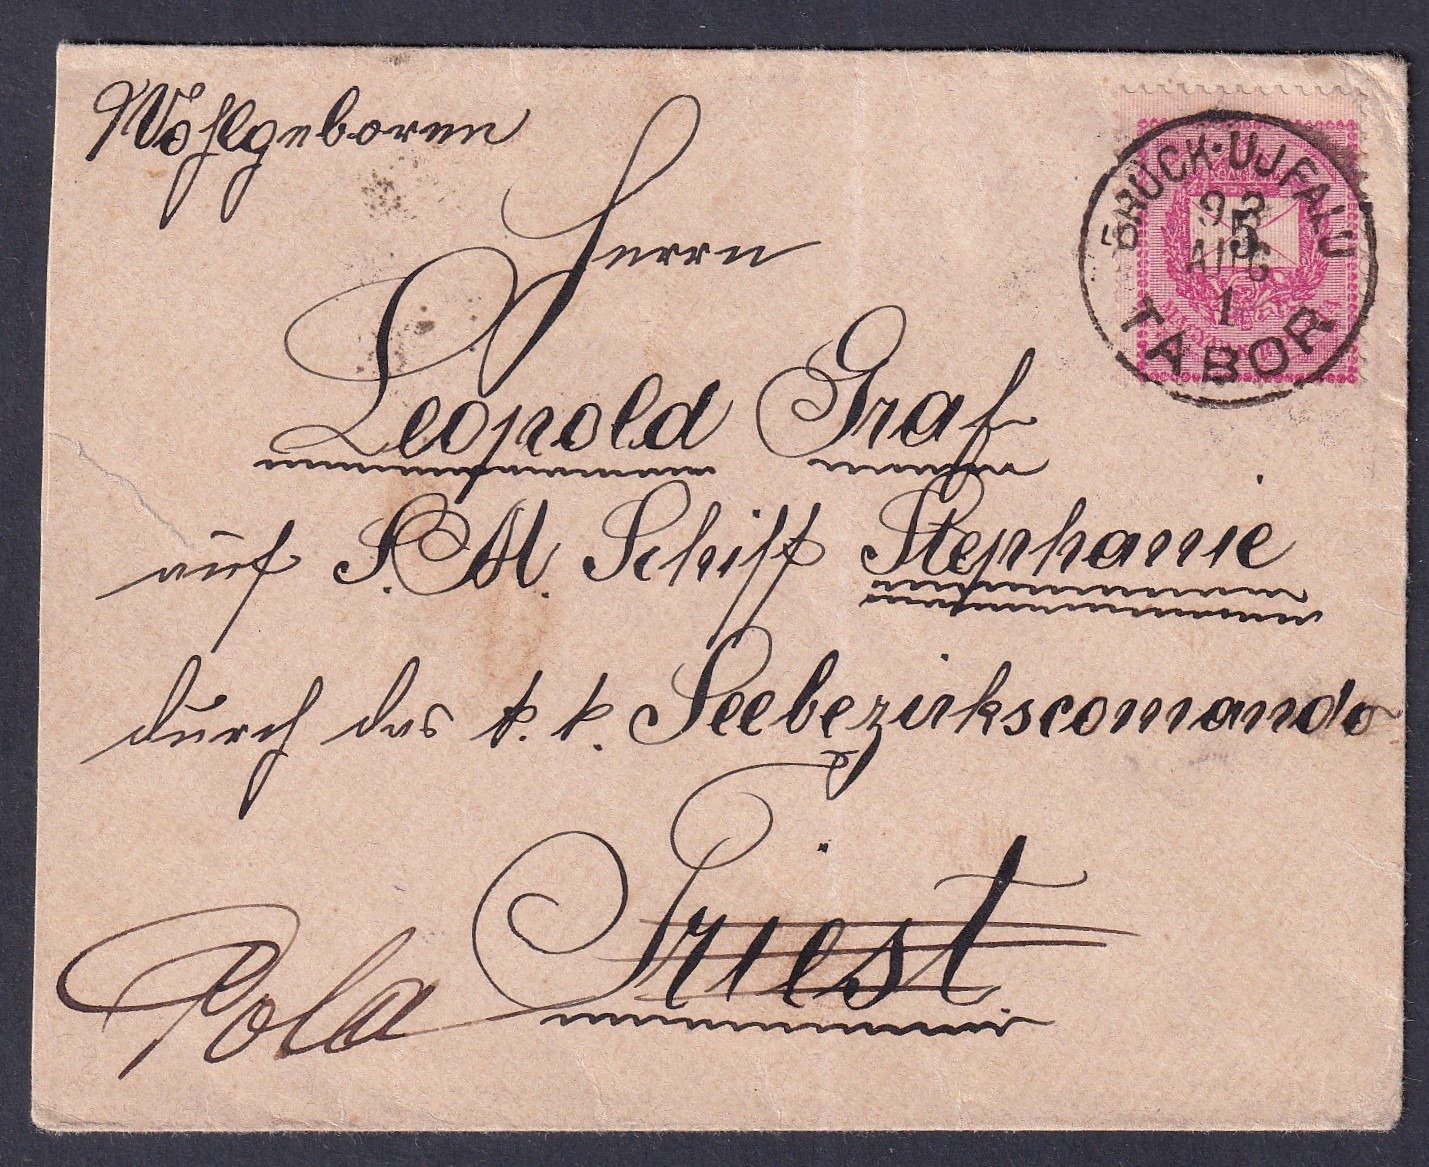 Wohlgeboren
Herrn
Leopold Graf
auf S. M. Schiff Stephanie
durch das k. k. Seebezirkscomando
Triest
Pola
BRUCK-UJFALU
93
AUG
1
TABOR
5